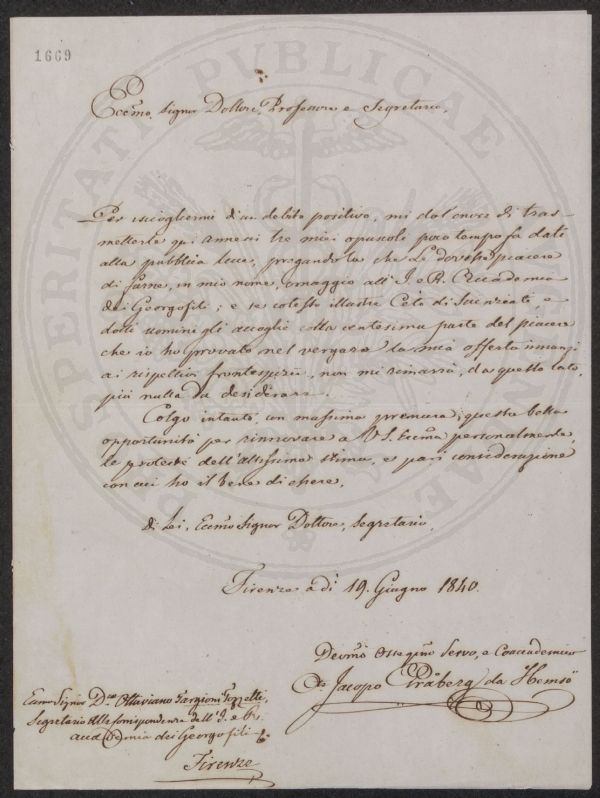 1669
Eccmo Signor Dottore, Professore e Segretario,
Per isciogliermi di un debito positivo, mi dò l'onore di tras-
metterle qui annessi tre miei opuscoli poco tempo fa dati
alla pubblica luce, pregandola che Le piacere
di farne, in mio nome, omaggio all'I. e R. Accademia
dei Georgofili; e se cotesto illustre Ceto di Scienziati, e
dotti uomini gli accoglie colla centesima parte del piacere
che io ho provato nel vergare la mia offerta innanzi
ai rispettivi frontespizi, non mi rimarrà, da questo lato,
più nulla da desiderare.
Colgo intanto con massima premura, questa bella
opportunità per rinnovare a V.S. Eccma personalmente,
le proteste dell'altissima stima, e pari considerazione
con cui ho il bene di essere,
di Lei, Eccmo Signor Dottore, Segretario,
Firenze a dì 19. Giugno 1840.
Devmo Servo, e Coaccademico
Jacopo Gråberg da Hemsö
Eccmo Signor Dre Ottaviano Targioni Tozzetti,
Segretario delle corrispondenze dell'I. e R.
Accademia dei Georgofili
Firenze
SPERITATI PUBLICAE